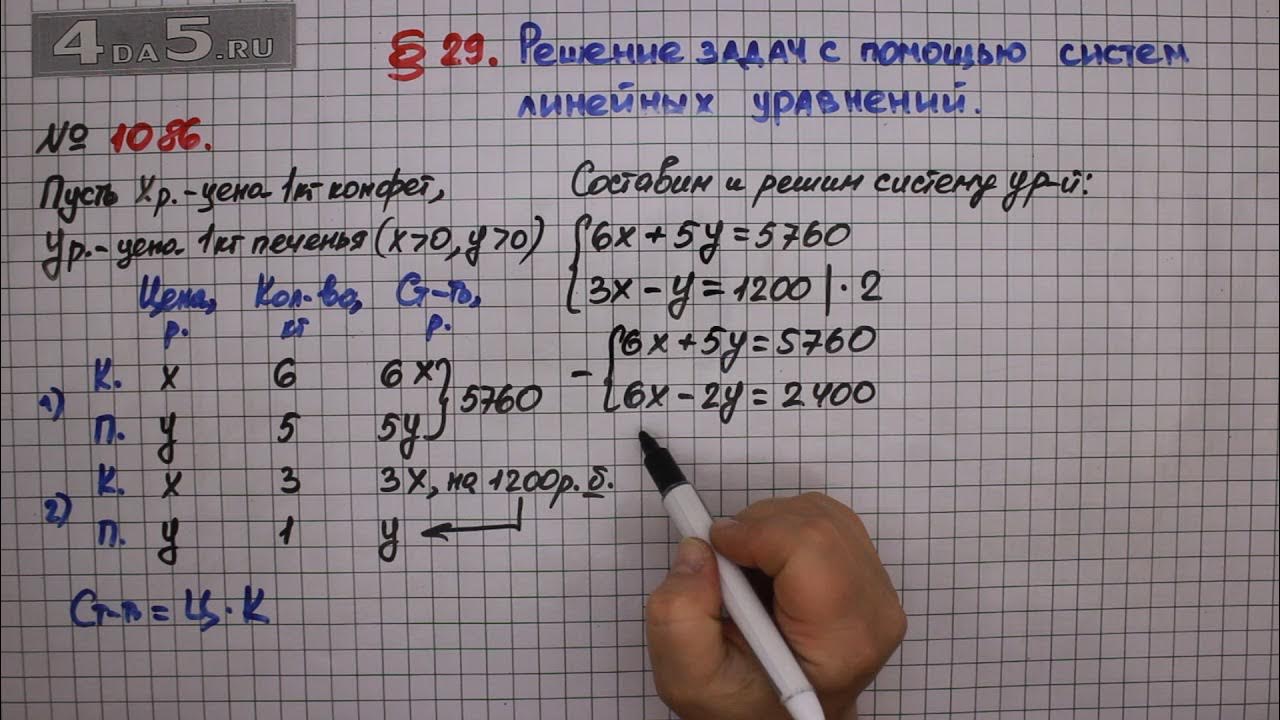 4DA5.RU
§ 29. Решение задач с помощью систем
линейных уравнений.
№ 1086.
Пусть х р.-цена 1кг конфет,
у р.-цена 1кг печенья (х>0, у>0)
Цена, Кол-во, Ст-ть,
р. кг р.
1) К. х 6 6х } 5760
П. у 5 5у
2) К. х 3 3х, на 1200р. б.
П. у 1 у
Ст-ть = Ц · К
Составим и решим систему ур-й:
6х + 5у = 5760
3х - у = 1200 | · 2
- 6х + 5у = 5760
6х - 2у = 2400